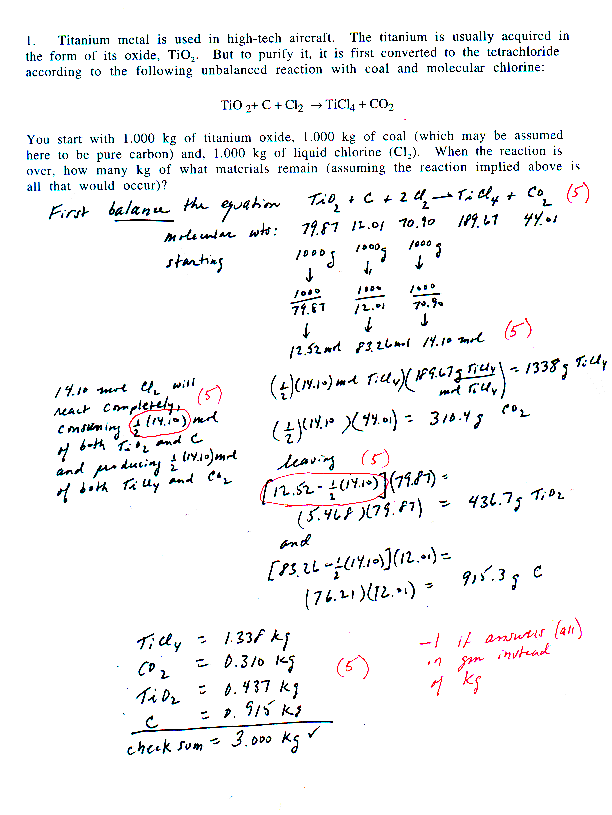 1. Titanium metal is used in high-tech aircraft. The titanium is usually acquired in
the form of its oxide, TiO₂. But to purify it, it is first converted to the tetrachloride
according to the following unbalanced reaction with coal and molecular chlorine:
TiO ₂+ C + Cl₂ → TiCl₄ + CO₂
You start with 1.000 kg of titanium oxide, 1.000 kg of coal (which may be assumed
here to be pure carbon) and, 1.000 kg of liquid chlorine (Cl₂). When the reaction is
over, how many kg of what materials remain (assuming the reaction implied above is
all that would occur)?
First balance the equation TiO₂ + C + 2 Cl₂ → TiCl₄ + CO₂ (5)
molecular wts: 79.87 12.01 70.90 189.67 44.01
starting 1000 g 1000 g 1000 g
↓ ↓ ↓
1000/79.87 1000/12.01 1000/70.90
↓ ↓ ↓
12.52 mol 83.26 mol 14.10 mol (5)
14.10 mol Cl₂ will
react completely, (5)
consuming ½(14.10) mol
of both TiO₂ and C
and producing ½(14.10) mol
of both TiCl₄ and CO₂
(½)(14.10) mol TiCl₄ (189.67 g TiCl₄ / mol TiCl₄) = 1338 g TiCl₄
(½)(14.10)(44.01) = 310.4 g CO₂
leaving (5)
[12.52 - ½(14.10)](79.87) =
(5.468)(79.87) = 436.7 g TiO₂
and
[83.26 - ½(14.10)](12.01) =
(76.21)(12.01) = 915.3 g C
TiCl₄ = 1.338 kg
CO₂ = 0.310 kg (5)
TiO₂ = 0.437 kg
C = 0.915 kg
check sum = 3.000 kg ✓
-1 if answers (all)
in gm instead
of kg